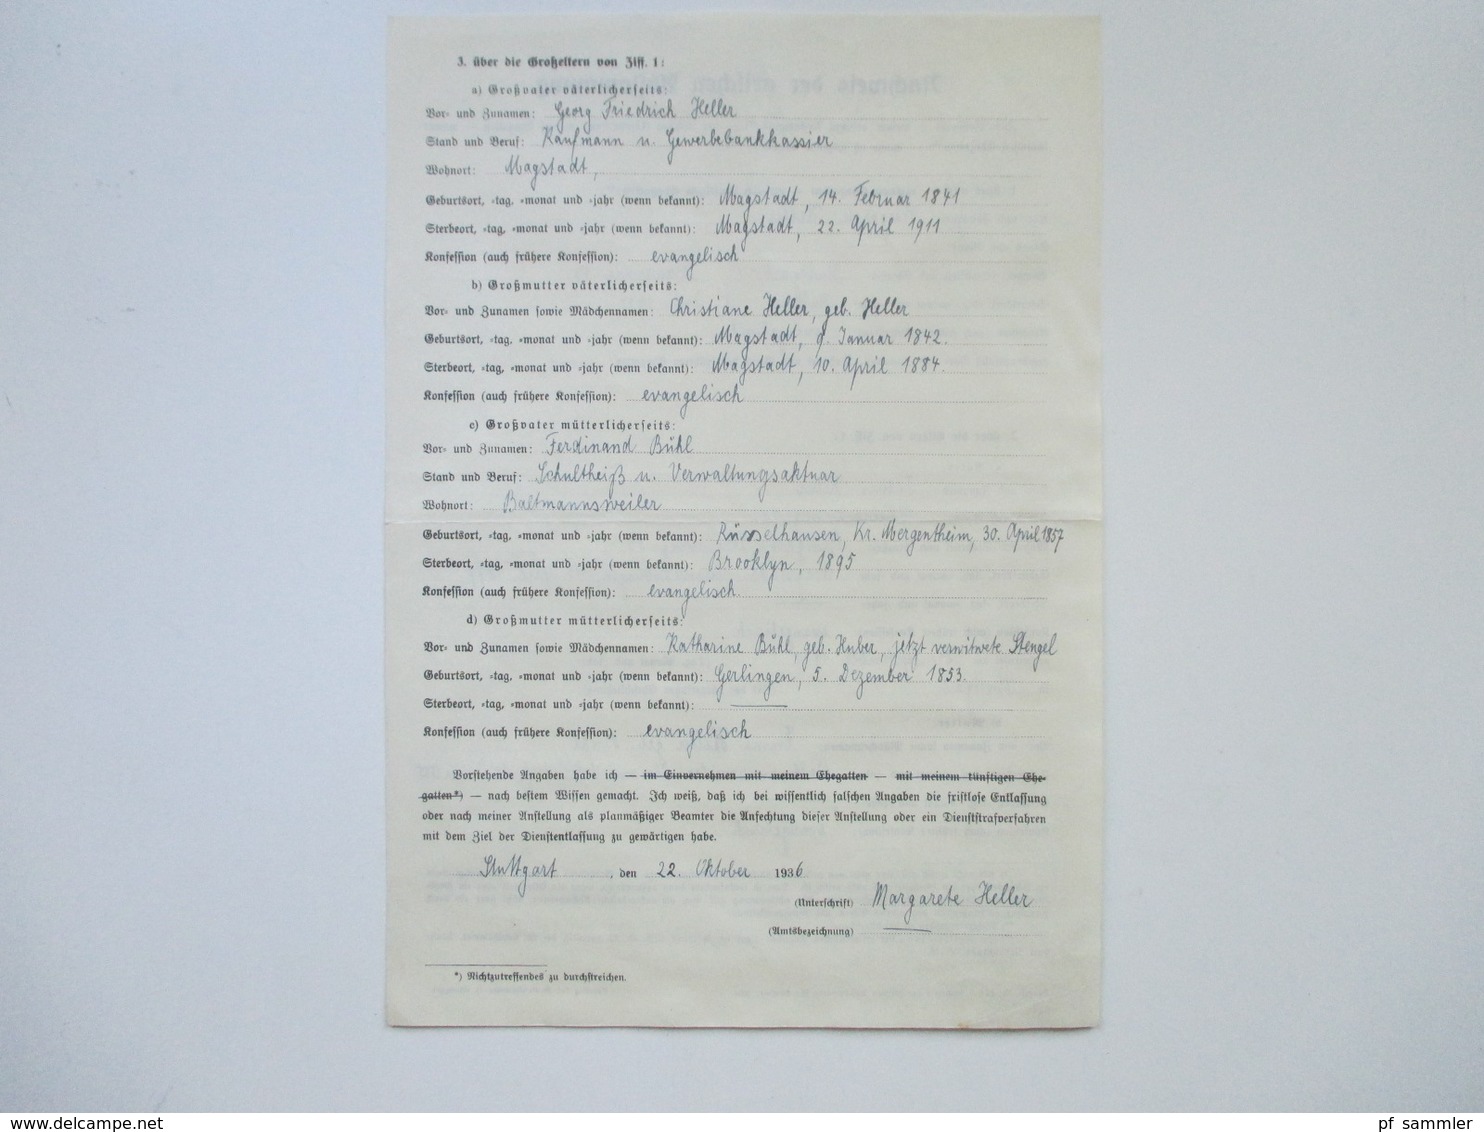 3. über die Großeltern von Ziff. 1:
a) Großvater väterlicherseits:
Vor- und Zunamen: Georg Friedrich Heller
Stand und Beruf: Kaufmann u. Gewerbebankkassier
Wohnort: Magstadt,
Geburtsort, -tag, -monat und -jahr (wenn bekannt): Magstadt, 14. Februar 1841
Sterbeort, -tag, -monat und -jahr (wenn bekannt): Magstadt, 22. April 1911
Konfession (auch frühere Konfession): evangelisch
b) Großmutter väterlicherseits:
Vor- und Zunamen sowie Mädchennamen: Christiane Heller, geb. Heller
Geburtsort, -tag, -monat und -jahr (wenn bekannt): Magstadt, Januar 1842.
Sterbeort, -tag, -monat und -jahr (wenn bekannt): Magstadt, 10. April 1884.
Konfession (auch frühere Konfession): evangelisch
c) Großvater mütterlicherseits:
Vor- und Zunamen: Ferdinand Bühl
Stand und Beruf: Schultheiß u. Verwaltungsaktuar
Wohnort: Baltmannsweiler
Geburtsort, -tag, -monat und -jahr (wenn bekannt): Rüsselhausen, Kr. Mergentheim, 30. April 1857
Sterbeort, -tag, -monat und -jahr (wenn bekannt): Brooklyn, 1895
Konfession (auch frühere Konfession): evangelisch.
d) Großmutter mütterlicherseits:
Vor- und Zunamen sowie Mädchennamen: Katharine Bühl, geb. Huber, jetzt verwitwete Stengel
Geburtsort, -tag, -monat und -jahr (wenn bekannt): Gerlingen, 5. Dezember 1853.
Sterbeort, -tag, -monat und -jahr (wenn bekannt): —
Konfession (auch frühere Konfession): evangelisch
Vorstehende Angaben habe ich — im Einvernehmen mit meinem Ehegatten — mit meinem künftigen Ehe-
gatten*) — nach bestem Wissen gemacht. Ich weiß, daß ich bei wissentlich falschen Angaben die fristlose Entlassung
oder nach meiner Anstellung als planmäßiger Beamter die Anfechtung dieser Anstellung oder ein Dienststrafverfahren
mit dem Ziel der Dienstentlassung zu gewärtigen habe.
Stuttgart, den 22. Oktober 1936
(Unterschrift) Margarete Heller
(Amtsbezeichnung) —
*) Nichtzutreffendes zu durchstreichen.
www.delcampe.net
pf_sammler